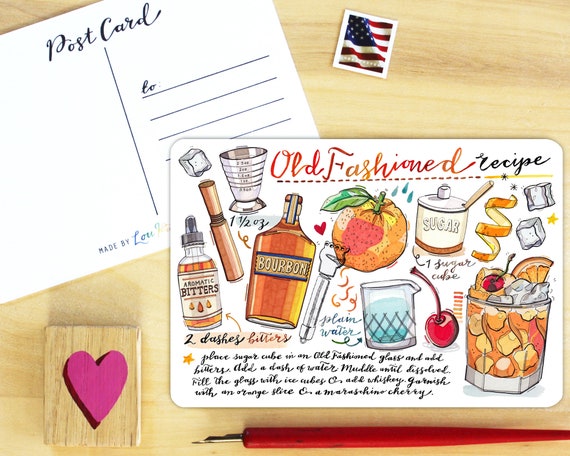 Post Card
to:
MADE BY Lou
Old Fashioned recipe
1 1/2 oz
SUGAR
BOURBON
AROMATIC
BITTERS
1 sugar
cube
plain
water
2 dashes bitters
place sugar cube in an Old Fashioned glass and add
bitters. Add a dash of water. Muddle until dissolved.
Fill the glass with ice cubes & add whiskey. Garnish
with an orange slice & a maraschino cherry.